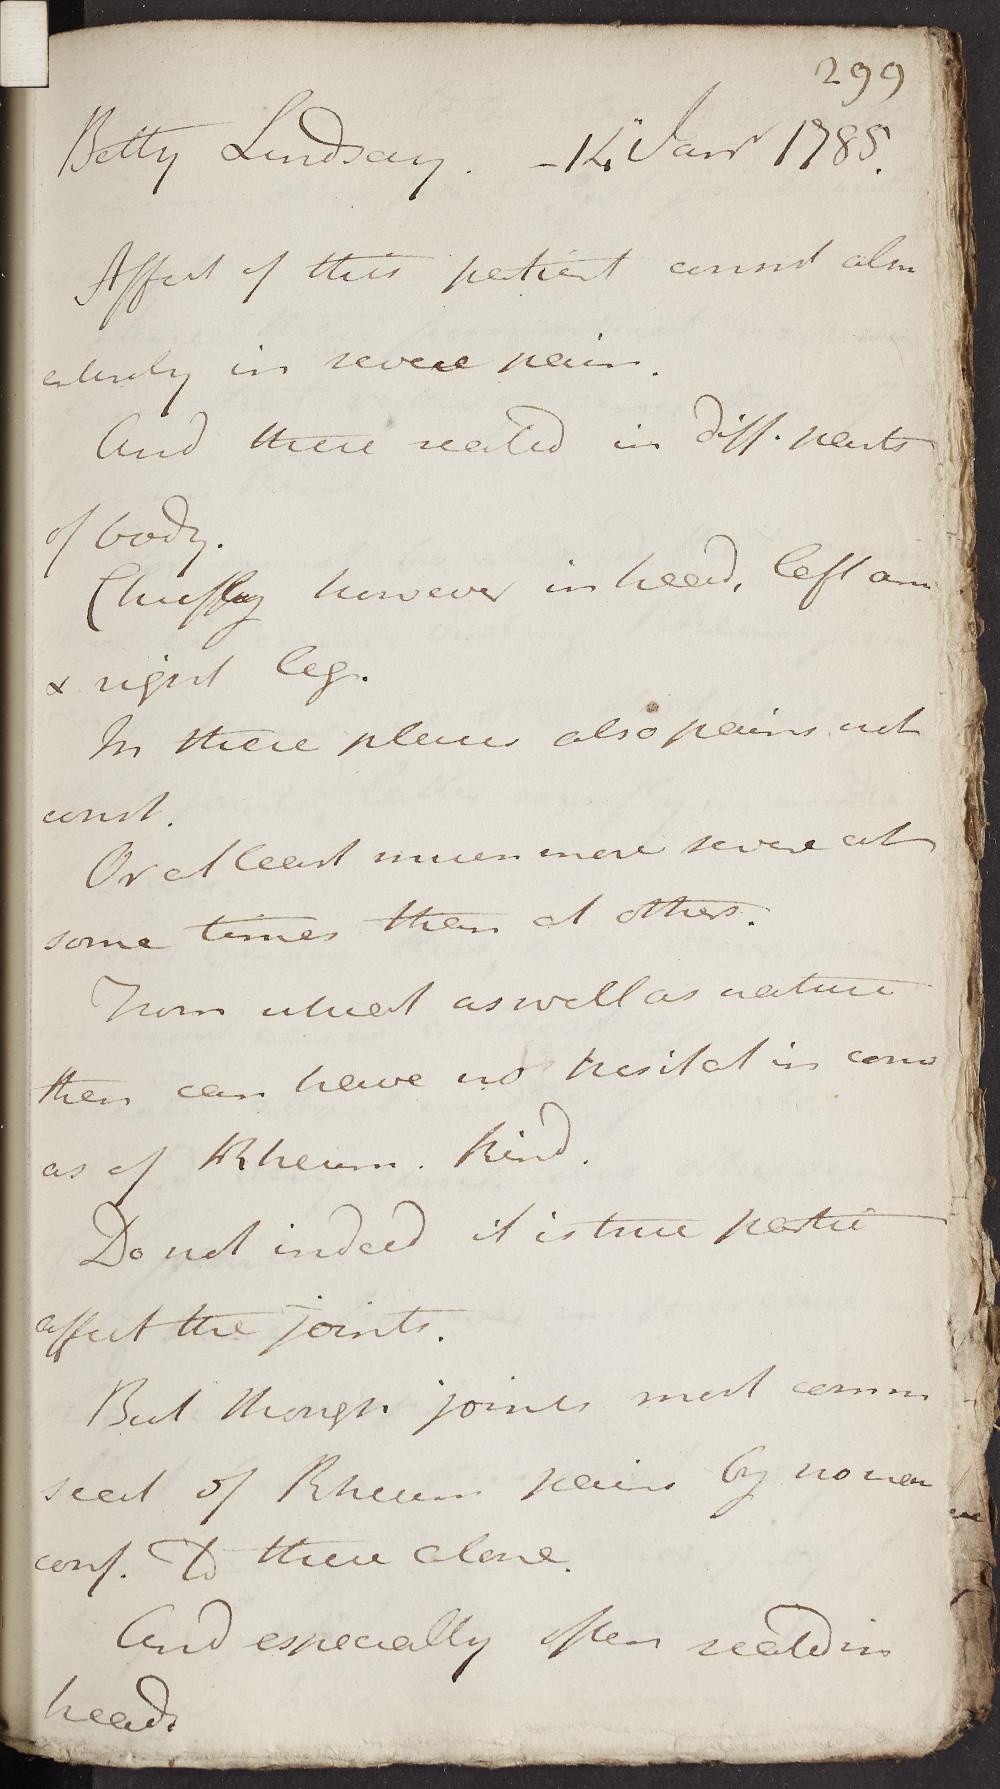 299
Betty Lindsay. - 14 Janr 1785.
Affect of this patient consist alm
entirely in severe pain.
And these seated in diff. parts
of body.
Chiefly however in head, left arm
& right leg.
In these places also pains not
const.
Or at least much more severe at
some times than at others.
From which as well as nature
then can have no hesitat in cons
as of Rheum. kind.
Do not indeed it is true partic
affect the joints.
But though joints most comm
seat of Rheum pains by no mean
conf. to these alone.
And especially often seated in
head.